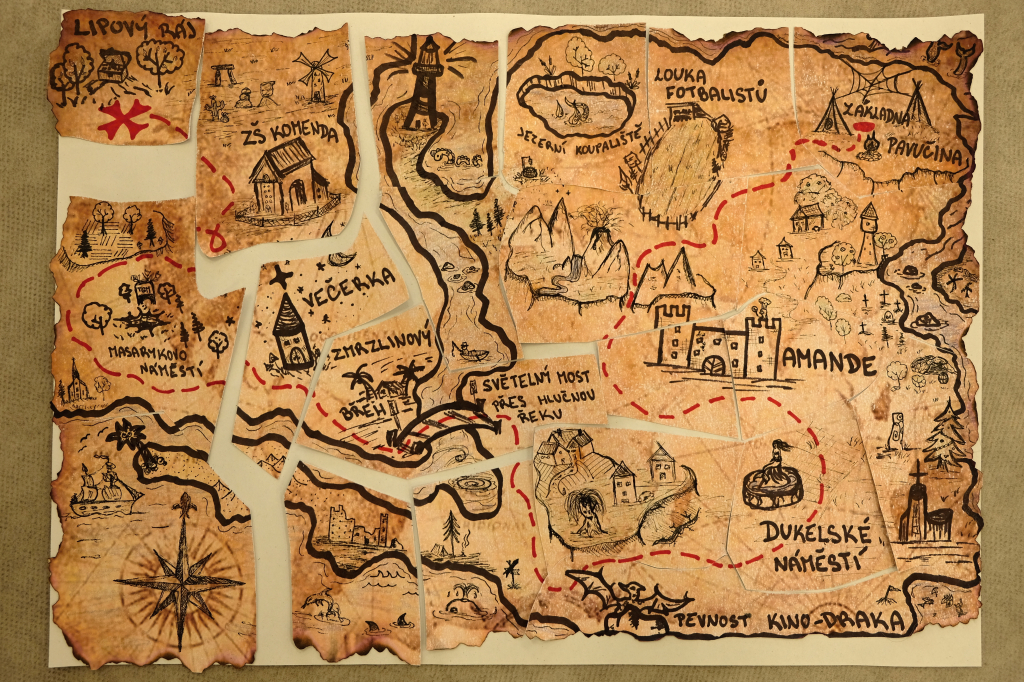 LIPOVÝ RÁJ
ZŠ KOMENDA
JEZERNÍ KOUPALIŠTĚ
LOUKA
FOTBALISTŮ
ZÁKLADNA
PAVUČINA
VEČERKA
MASARYKOVO
NÁMĚSTÍ
ZMRZLINOVÝ
BŘEH
SVĚTELNÝ MOST
PŘES HLUČNOU
ŘEKU
AMANDE
DUKELSKÉ
NÁMĚSTÍ
PEVNOST KINO-DRAKA